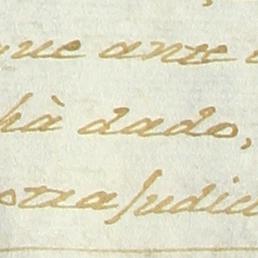 que ante
hà dado,
ostra Judici